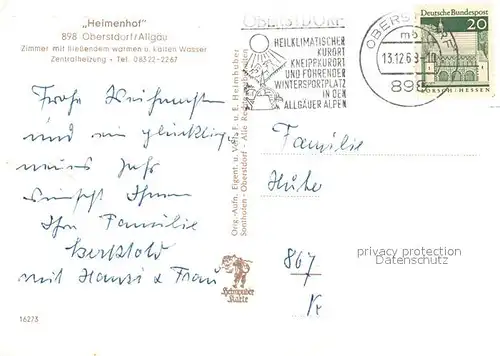 „Heimenhof"
898 Oberstdorf/Allgäu
Zimmer mit fließendem warmen u. kalten Wasser
Zentralheizung - Tel. 08322-2267
Frohe Weihnachten
und ein glückliches
neues Jahr
wünscht Ihnen
Ihre Familie
Berktold
mit Hansi & Frau
16273
Orig.-Aufn. Eigent. u. Verl. F. u. E. Heimhuber
Sonthofen-Oberstdorf - Alle Rechte vorbehalten
Heimhuber
Karte
OBERSTDORF
HEILKLIMATISCHER
KURORT
KNEIPPKURORT
UND FÜHRENDER
WINTERSPORTPLATZ
IN DEN
ALLGÄUER ALPEN
OBERSTDORF
mb
13.12.68-10
898
Deutsche Bundespost
20
LORSCH/HESSEN
Familie
Huber
867
privacy protection
Datenschutz